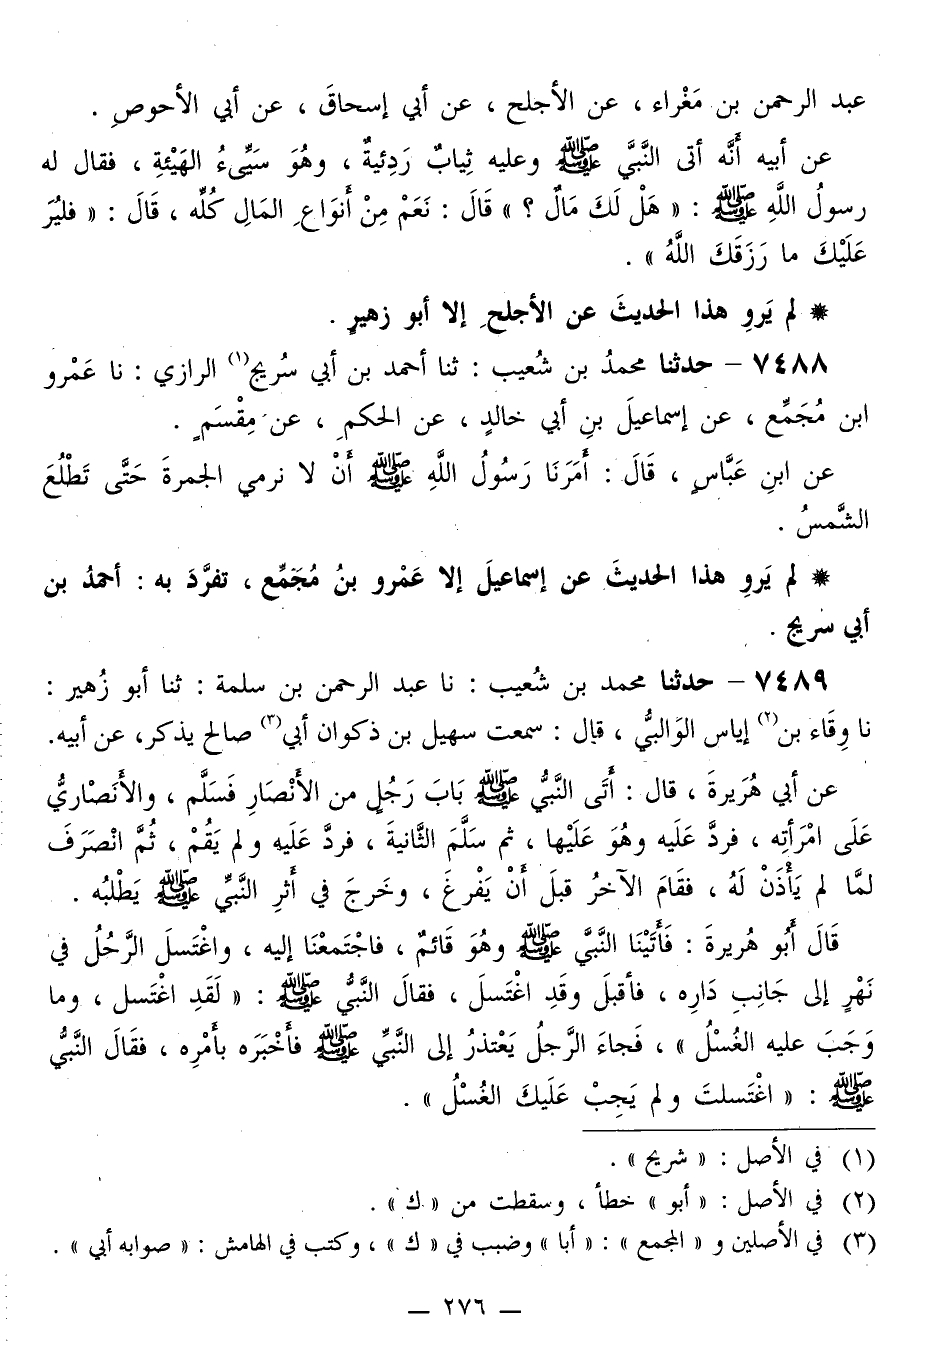 عبد الرحمن بن مَغْراء ، عن الأجلح ، عن أبي إسحاقَ ، عن أبي الأحوصِ .
عن أبيه أَنَّه أتى النَّبيَّ ﷺ وعليه ثِيابٌ رَدِئيةٌ ، وهُوَ سَيِّىءُ الهَيْئةِ ، فقال له
رسولُ اللَّهِ ﷺ : « هَلْ لَكَ مَالٌ ؟ » قَالَ : نَعَمْ مِنْ أنوَاعِ المَالِ كُلِّه ، قَالَ : « فليُرَ
عَلَيْكَ ما رَزَقَكَ اللَّهُ » .
* لم يَروِ هذا الحديثَ عن الأجلحِ إلا أبو زهيرٍ .
٧٤٨٨ – حدثنا محمدُ بن شُعيب : ثنا أحمد بن أبي سُريج(١) الرازي : نا عَمْرو
ابن مُجَمِّع ، عن إسماعيلَ بنِ أبي خالدٍ ، عن الحكمِ ، عن مِقْسَمٍ .
عن ابنِ عَبَّاسٍ ، قَالَ : أَمَرَنَا رَسُولُ اللَّهِ ﷺ أَنْ لا نرمي الجمرةَ حَتَّى تَطْلُعَ
الشَّمسُ .
* لم يَروِ هذا الحديثَ عن إسماعيلَ إلا عَمْرو بنُ مُجَمِّع ، تفرَّدَ به : أحمدُ بن
أبي سريج .
٧٤٨٩ – حدثنا محمد بن شُعيب : نا عبد الرحمن بن سلمة : ثنا أبو زُهير :
نا وِقَاء بن(٢) إياس الوَالبيُّ ، قال : سمعت سهيل بن ذكوان أبي(٣) صالح يذكر، عن أبيه.
عن أبي هُرَيرةَ ، قال : أَتَى النَّبيُّ ﷺ بَابَ رَجُلٍ من الأَنْصَارِ فَسَلَّم ، والأَنَصْاريُّ
عَلَى امْرَأتِه ، فردَّ عَلَيه وهُوَ عَلَيْها ، ثم سَلَّمَ الثَّانيةَ ، فردَّ عَلَيه ولم يَقُمْ ، ثُمَّ انْصرَفَ
لمَّا لم يَأْذَنْ لَهُ ، فقَامَ الآخرُ قبلَ أَنْ يَفْرغَ ، وخَرجَ في أَثرِ النَّبيِّ ﷺ يَطْلبُه .
قَالَ أَبُو هُريرةَ : فَأَتَيْنَا النَّبيَّ ﷺ وهُوَ قَائمٌ ، فاجْتَمعْنَا إليه ، واغْتَسلَ الرَّجُلُ في
نَهْرٍ إلى جَانبِ دَارِه ، فأقبلَ وقَدِ اغْتَسلَ ، فقالَ النَّبيُّ ﷺ : « لَقَدِ اغْتَسل ، وما
وَجَبَ عليه الغُسْلُ » ، فَجاءَ الرَّجلُ يَعْتذرُ إلى النَّبيِّ ﷺ فأَخْبَرَه بأَمْرِه ، فقَالَ النَّبيُّ
ﷺ : « اغْتَسلتَ ولم يَجِبْ عَلَيكَ الغُسْلُ » .
(١) في الأصل : « شريح » .
(٢) في الأصل : « أبو » خطأ ، وسقطت من « ك » .
(٣) في الأصلين و « المجمع » : « أبا » وضبب في « ك » ، وكتب في الهامش : « صوابه أبي » .
— ٢٧٦ —